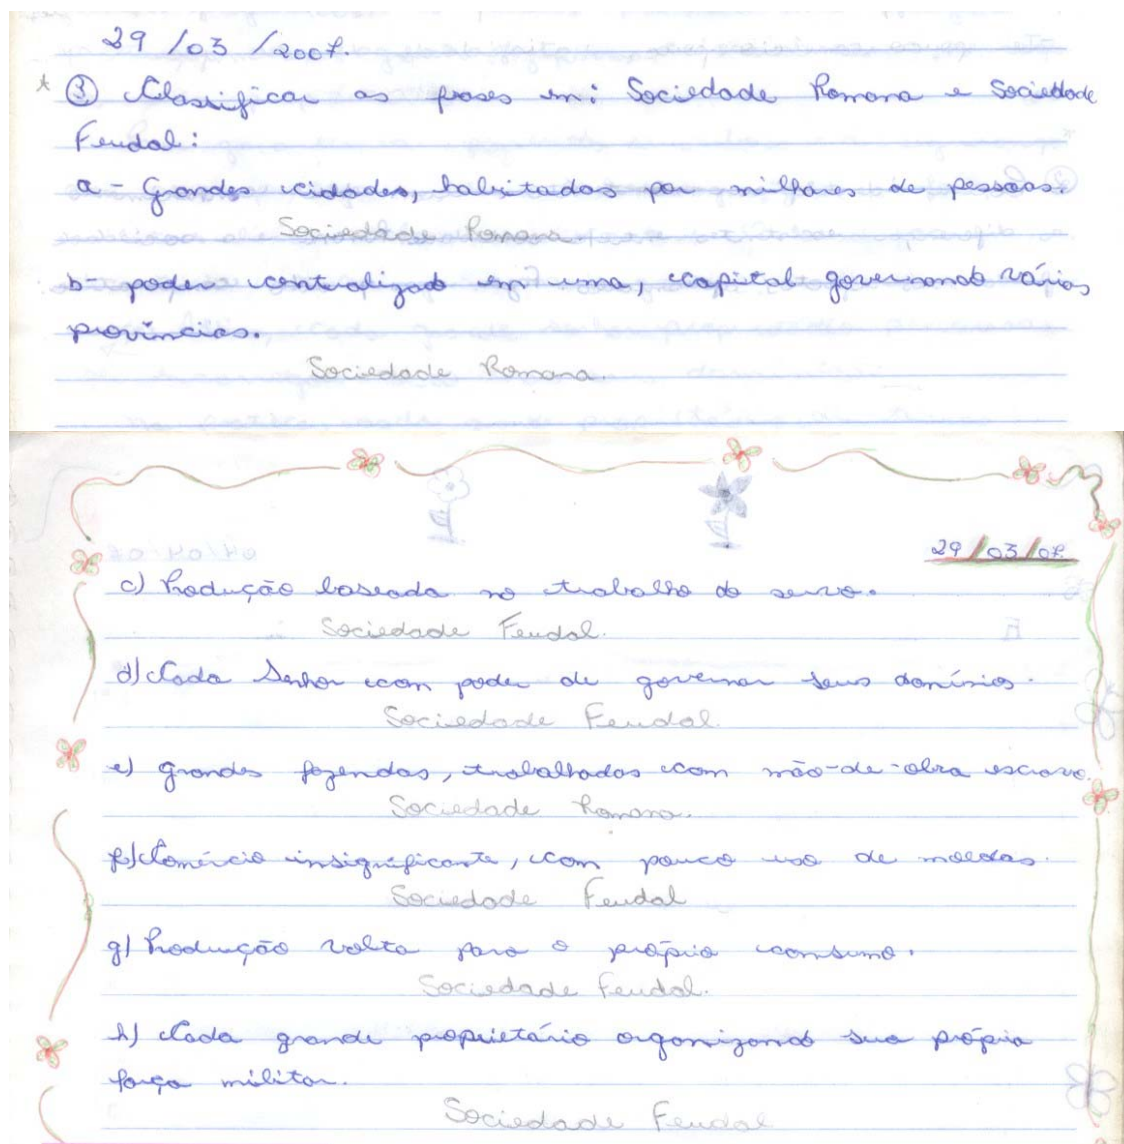 29/03/2007.
* ③ Classificar as frases em: Sociedade Romana e Sociedade
Feudal:
a- Grandes cidades, habitadas por milhares de pessoas.
Sociedade Romana.
b- poder centralizado em uma, capital governando vários
províncias.
Sociedade Romana.
29/03/07
c) Produção baseada no trabalho do servo.
Sociedade Feudal.
d) Cada Senhor com poder de governar seus domínios.
Sociedade Feudal.
e) grandes fazendas, trabalhadas com mão-de-obra escrava.
Sociedade Romana.
f) Comércio insignificante, com pouco uso de moedas.
Sociedade Feudal
g) Produção volta para o própria consumo.
Sociedade Feudal.
h) Cada grande proprietário organizando sua própria
força militar.
Sociedade Feudal